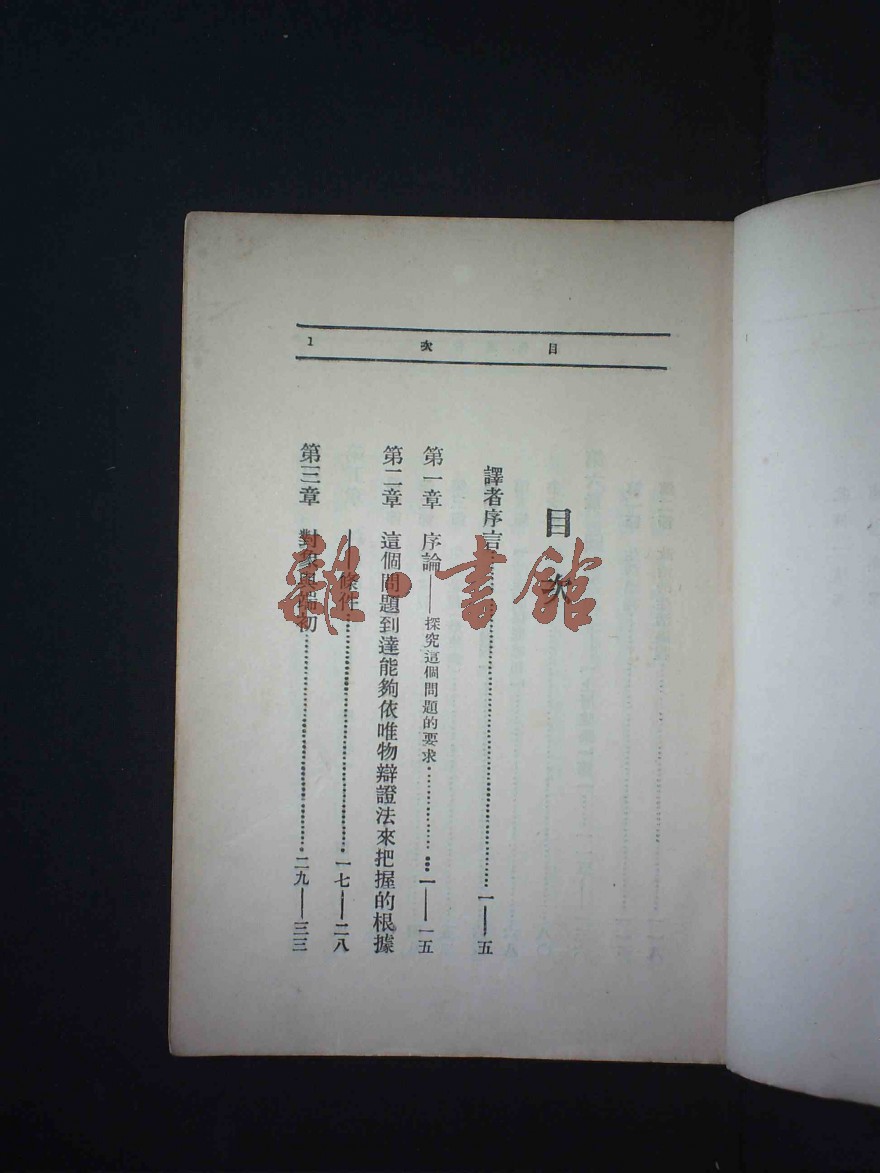 目次 1
目次
譯者序言……一——五
第一章 序論——探究這個問題的要求……一——一五
第二章 這個問題到達能夠依唯物辯證法來把握的根據
——條件……一七——二八
第三章 對象與端初……二九——三三
雜·書館